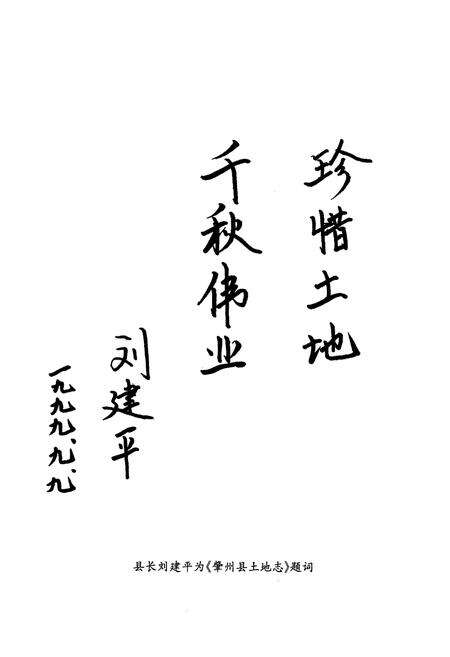 珍惜土地
千秋伟业
刘建平
一九九九、九、九、
县长刘建平为《肇州县土地志》题词